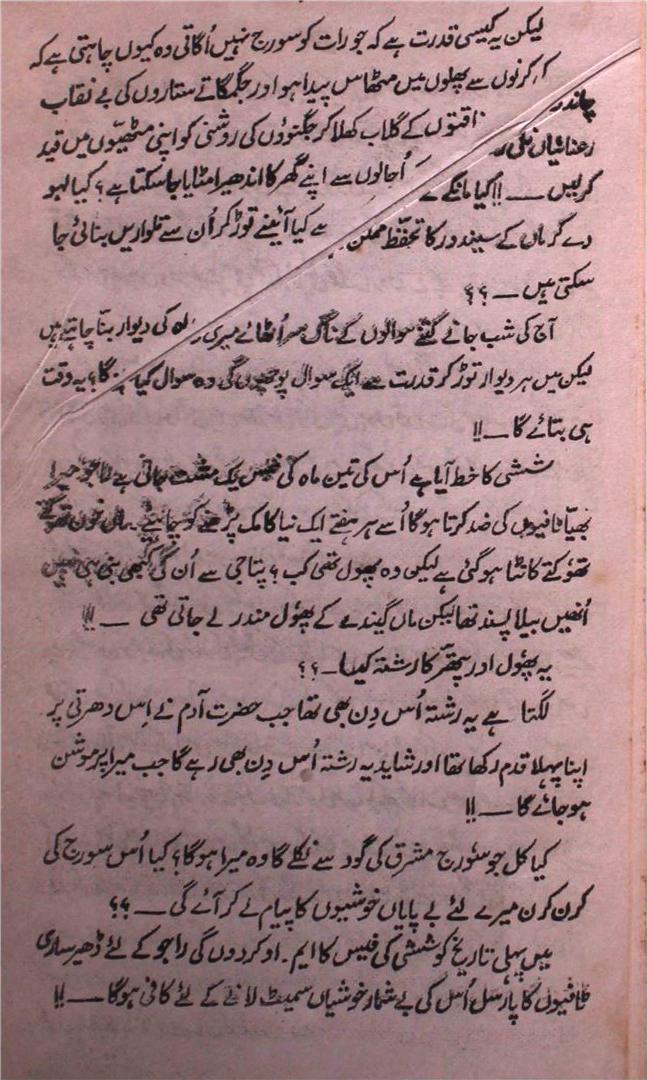 لیکن یہ کیسی قدرت ہے کہ جو رات کو سورج نہیں اُگاتی وہ کیوں چاہتی ہے کہ
کرنوں سے پھلوں میں مٹھاس پیدا ہو اور جگمگاتے ستاروں کی بے نقاب
رعنائیاں کے گلاب کھلا کر جگنوؤں کی روشنی کو اپنی مٹھیّوں میں قید
کرلیں ــــ !! کیا مانگے کے اُجالوں سے اپنے گھر کا اندھیرا مٹایا جا سکتا ہے ؟ کیا لہو
دے کر ماں کے سیندور کا تحفّظ ممکن ہے کیا آئینے توڑ کر اُن سے تلواریں بنائی جا
سکتی ہیں ــ ؟؟
آج کی شب جانے کتنے سوالوں کے ناگ سر اُٹھائے میری راہ کی دیوار بننا چاہتے ہیں
لیکن میں ہر دیوار توڑ کر قدرت سے ایک سوال پوچھوں گی وہ سوال کیا ہوگا ؟ یہ وقت
ہی بتائے گا ــ !!
ششی کا خط آیا ہے اُس کی تین ماہ کی فیس یک مشت جاتی ہے راجو میرا
بھیّا ٹافیوں کی ضد کرتا ہوگا اُسے ہر ہفتے ایک نیا کامک پڑھنے کو چاہئیے۔ ماں خون تھوکتے
تھوکتے کانٹا ہو گئی ہے لیکن وہ پھول تھی کب ؟ پتاجی سے اُن کی کبھی بنی ہی نہیں
اُنھیں بیلا پسند تھا لیکن ماں گیندے کے پھوُل مندر لے جاتی تھی ــــ !!!
یہ پھوُل اور پتھّر کا رشتہ کیسا ــ ؟؟
لگتا ہے یہ رشتہ اُس دِن بھی تھا جب حضرت آدم نے اِس دھرتی پر
اپنا پہلا قدم رکھا تھا اور شاید یہ رشتہ اُس دِن بھی رہے گا جب میرا پرموشن
ہو جائے گا ــــ !!
کیا کل جو سوُرج مشرق کی گود سے نکلے گا وہ میرا ہوگا ؟ کیا اُس سورج کی
کرن کرن میرے لئے بے پایاں خوشیوں کا پیام لے کر آئے گی ــــ ؟؟
میں پہلی تاریخ کو ششی کی فیس کا ایم۔ او کر دوں گی راجو کے لئے ڈھیر ساری
ٹافیوں کا پارسل اُس کی بے شمار خوشیاں سمیٹ لانے کے لئے کافی ہوگا ــــ !!